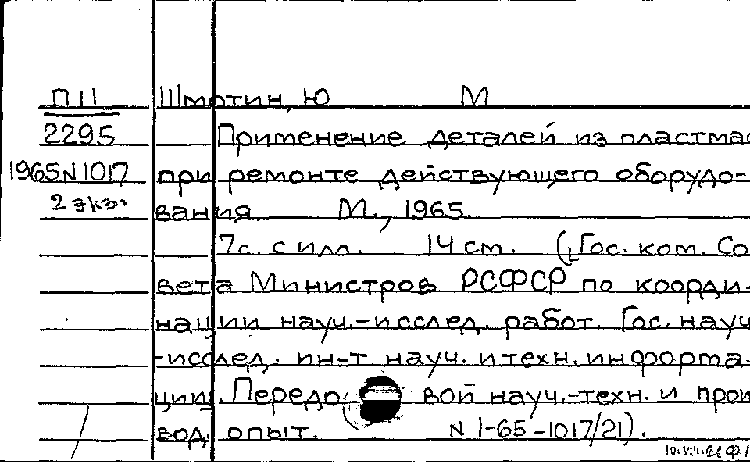 П11 Шмотин, Ю М
2295 Применение деталей из пластмас
1965 N 1017 при ремонте действующего оборудо-
2 экз. вания М., 1965.
7с. с илл. 14 см. (Гос. ком. Со
вета Министров РСФСР по коорди-
нации науч.-исслед. работ. Гос. науч
-исслед. ин-т науч. и техн. информа-
ции. Передовой науч.-техн. и произ
вод. опыт. N 1-65-1017/21).